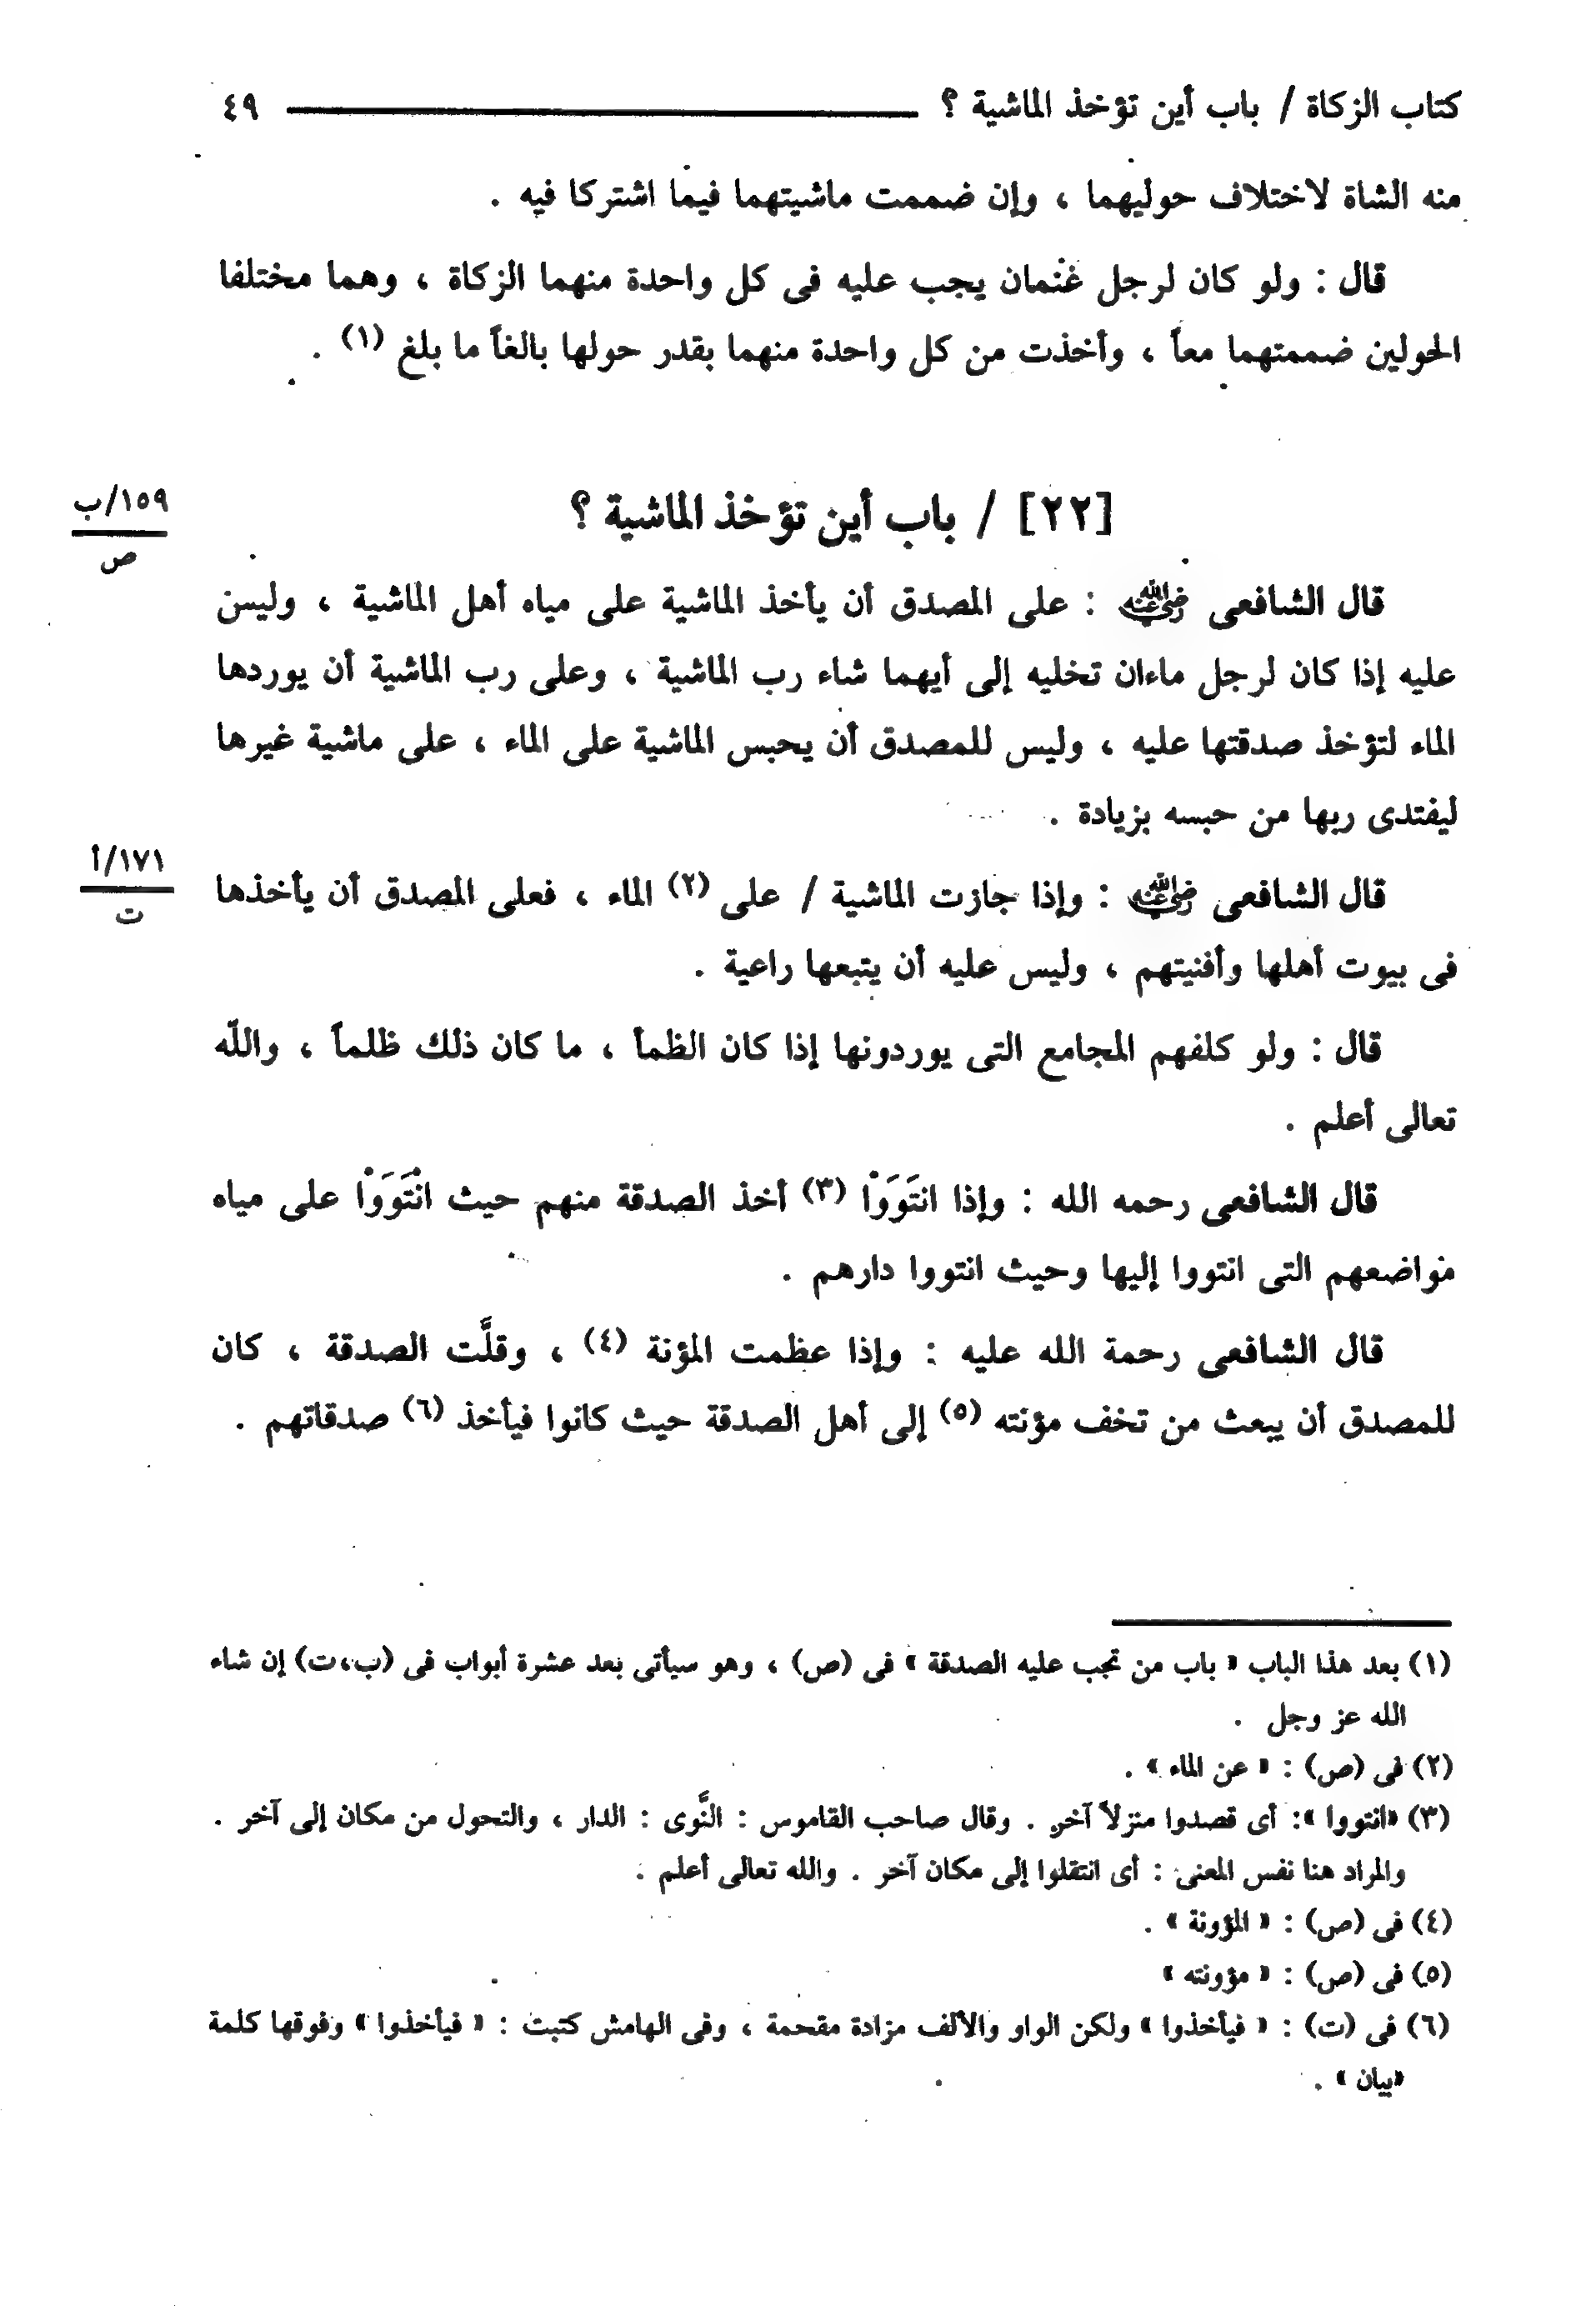 كتاب الزكاة / باب أين تؤخذ الماشية ؟ ٤٩
منه الشاة لاختلاف حوليهما ، وإن ضممت ماشيتهما فيما اشتركا فيه .
قال : ولو كان لرجل غنمان يجب عليه فى كل واحدة منهما الزكاة ، وهما مختلفا
الحولين ضممتهما معاً ، وأخذت من كل واحدة منهما بقدر حولها بالغاً ما بلغ (١) .
[٢٢] / باب أين تؤخذ الماشية ؟
١٥٩/ب
ص
قال الشافعى رضي الله عنه : على المصدق أن يأخذ الماشية على مياه أهل الماشية ، وليس
عليه إذا كان لرجل ماءان تخليه إلى أيهما شاء رب الماشية ، وعلى رب الماشية أن يوردها
الماء لتؤخذ صدقتها عليه ، وليس للمصدق أن يحبس الماشية على الماء ، على ماشية غيرها
ليفتدى ربها من حبسه بزيادة .
١٧١/أ
ت
قال الشافعى رضي الله عنه : وإذا جازت الماشية / على (٢) الماء ، فعلى المصدق أن يأخذها
فى بيوت أهلها وأفنيتهم ، وليس عليه أن يتبعها راعية .
قال : ولو كلفهم المجامع التى يوردونها إذا كان الظمأ ، ما كان ذلك ظلماً ، واللّه
تعالى أعلم .
قال الشافعى رحمه الله : وإذا انتَوَوْا (٣) أخذ الصدقة منهم حيث انْتَوَوْا على مياه
مواضعهم التى انتووا إليها وحيث انتووا دارهم .
قال الشافعى رحمة الله عليه : وإذا عظمت المؤنة (٤) ، وقلَّت الصدقة ، كان
للمصدق أن يبعث من تخف مؤنته (٥) إلى أهل الصدقة حيث كانوا فيأخذ (٦) صدقاتهم .
(١) بعد هذا الباب « باب من تجب عليه الصدقة » فى (ص) ، وهو سيأتى بعد عشرة أبواب فى (ب،ت) إن شاء
الله عز وجل .
(٢) فى (ص) : « عن الماء » .
(٣) «انتووا »: أى قصدوا منزلاً آخر . وقال صاحب القاموس : النَّوى : الدار ، والتحول من مكان إلى آخر .
والمراد هنا نفس المعنى : أى انتقلوا إلى مكان آخر . والله تعالى أعلم .
(٤) فى (ص) : « المؤونة » .
(٥) فى (ص) : « مؤونته »
(٦) فى (ت) : « فيأخذوا » ولكن الواو والألف مزادة مقحمة ، وفى الهامش كتبت : « فيأخذوا » وفوقها كلمة
«بيان » .